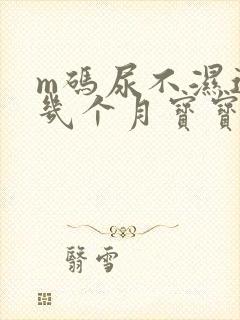 m碼尿不濕
幾个月寶寶
翳雪